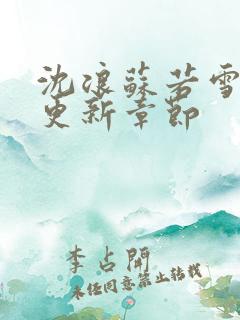 沈浪蘇若雪
更新章節
李占開
未经同意禁止转载